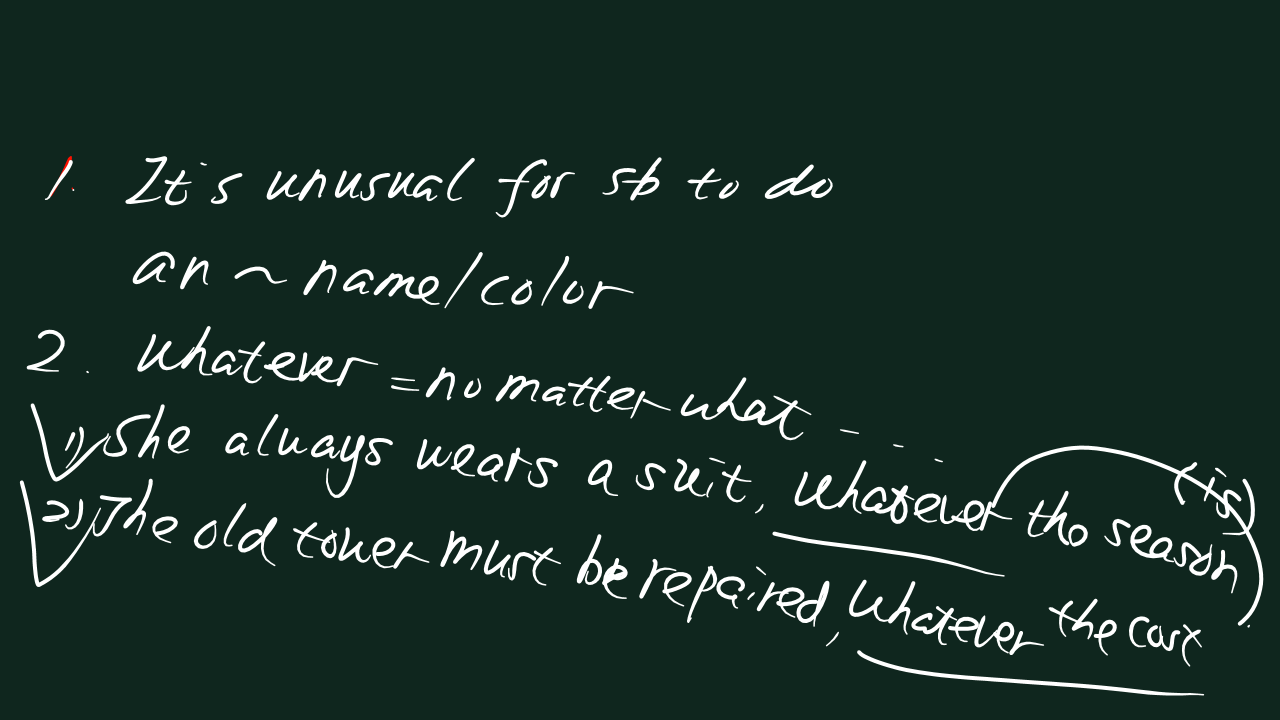 1. It's unusual for sb to do
an ~ name/color
2. Whatever = no matter what ---
1) She always wears a suit, whatever the season (is).
2) The old tower must be repaired, whatever the cost